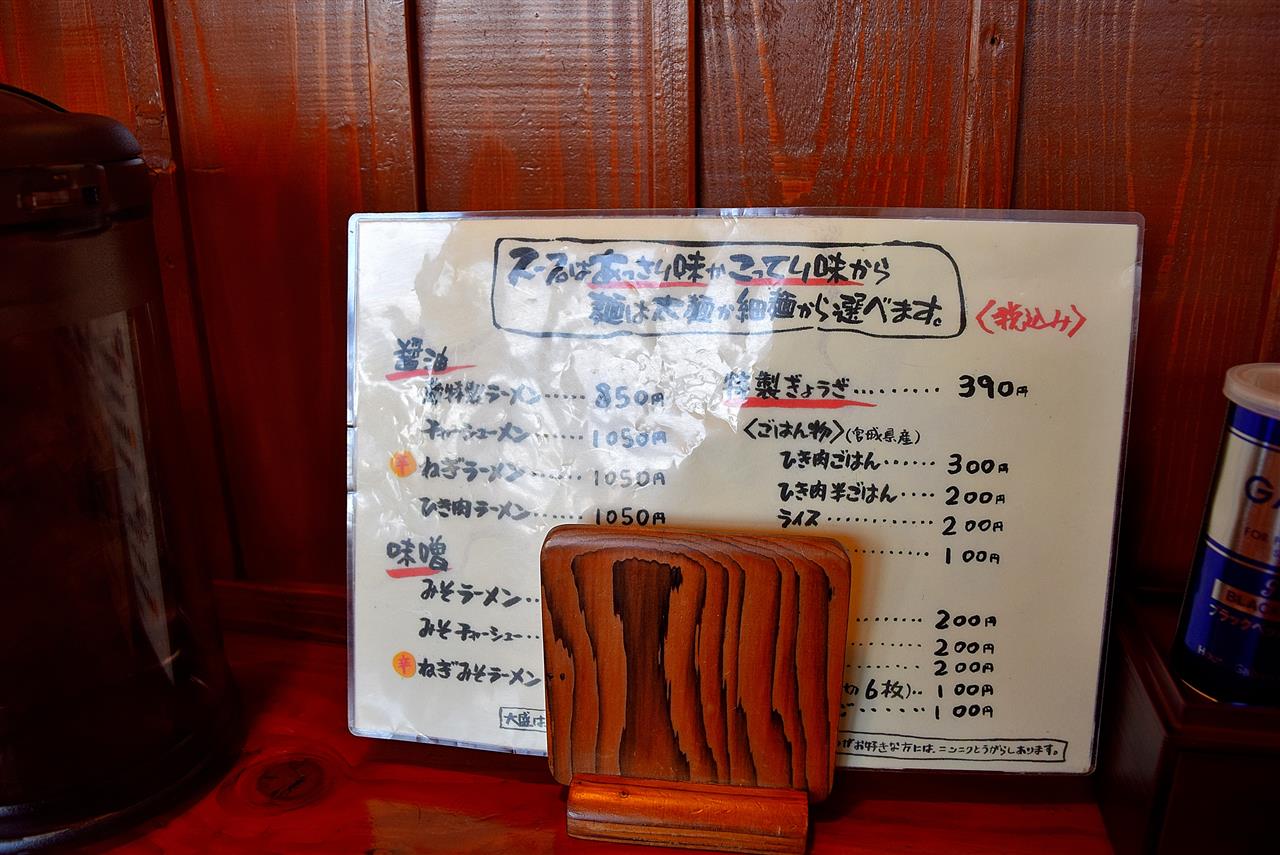 スープはあっさり味かこってり味から
麺は太麺か細麺から選べます。
〈税込み〉
醤油
特製ラーメン……850円
チャーシューメン……1050円
辛 ねぎラーメン……1050円
ひき肉ラーメン……1050円
味噌
みそラーメン‥
みそチャーシュー‥
辛 ねぎみそラーメン
大盛は
特製ぎょうざ…………390円
〈ごはん物〉(宮城県産)
ひき肉ごはん……300円
ひき肉半ごはん‥‥200円
ライス…………200円
…………100円
…………200円
…………200円
…………200円
切6枚)‥100円
……100円
がお好きな方には、ニンニクとうがらしあります。
BLACK